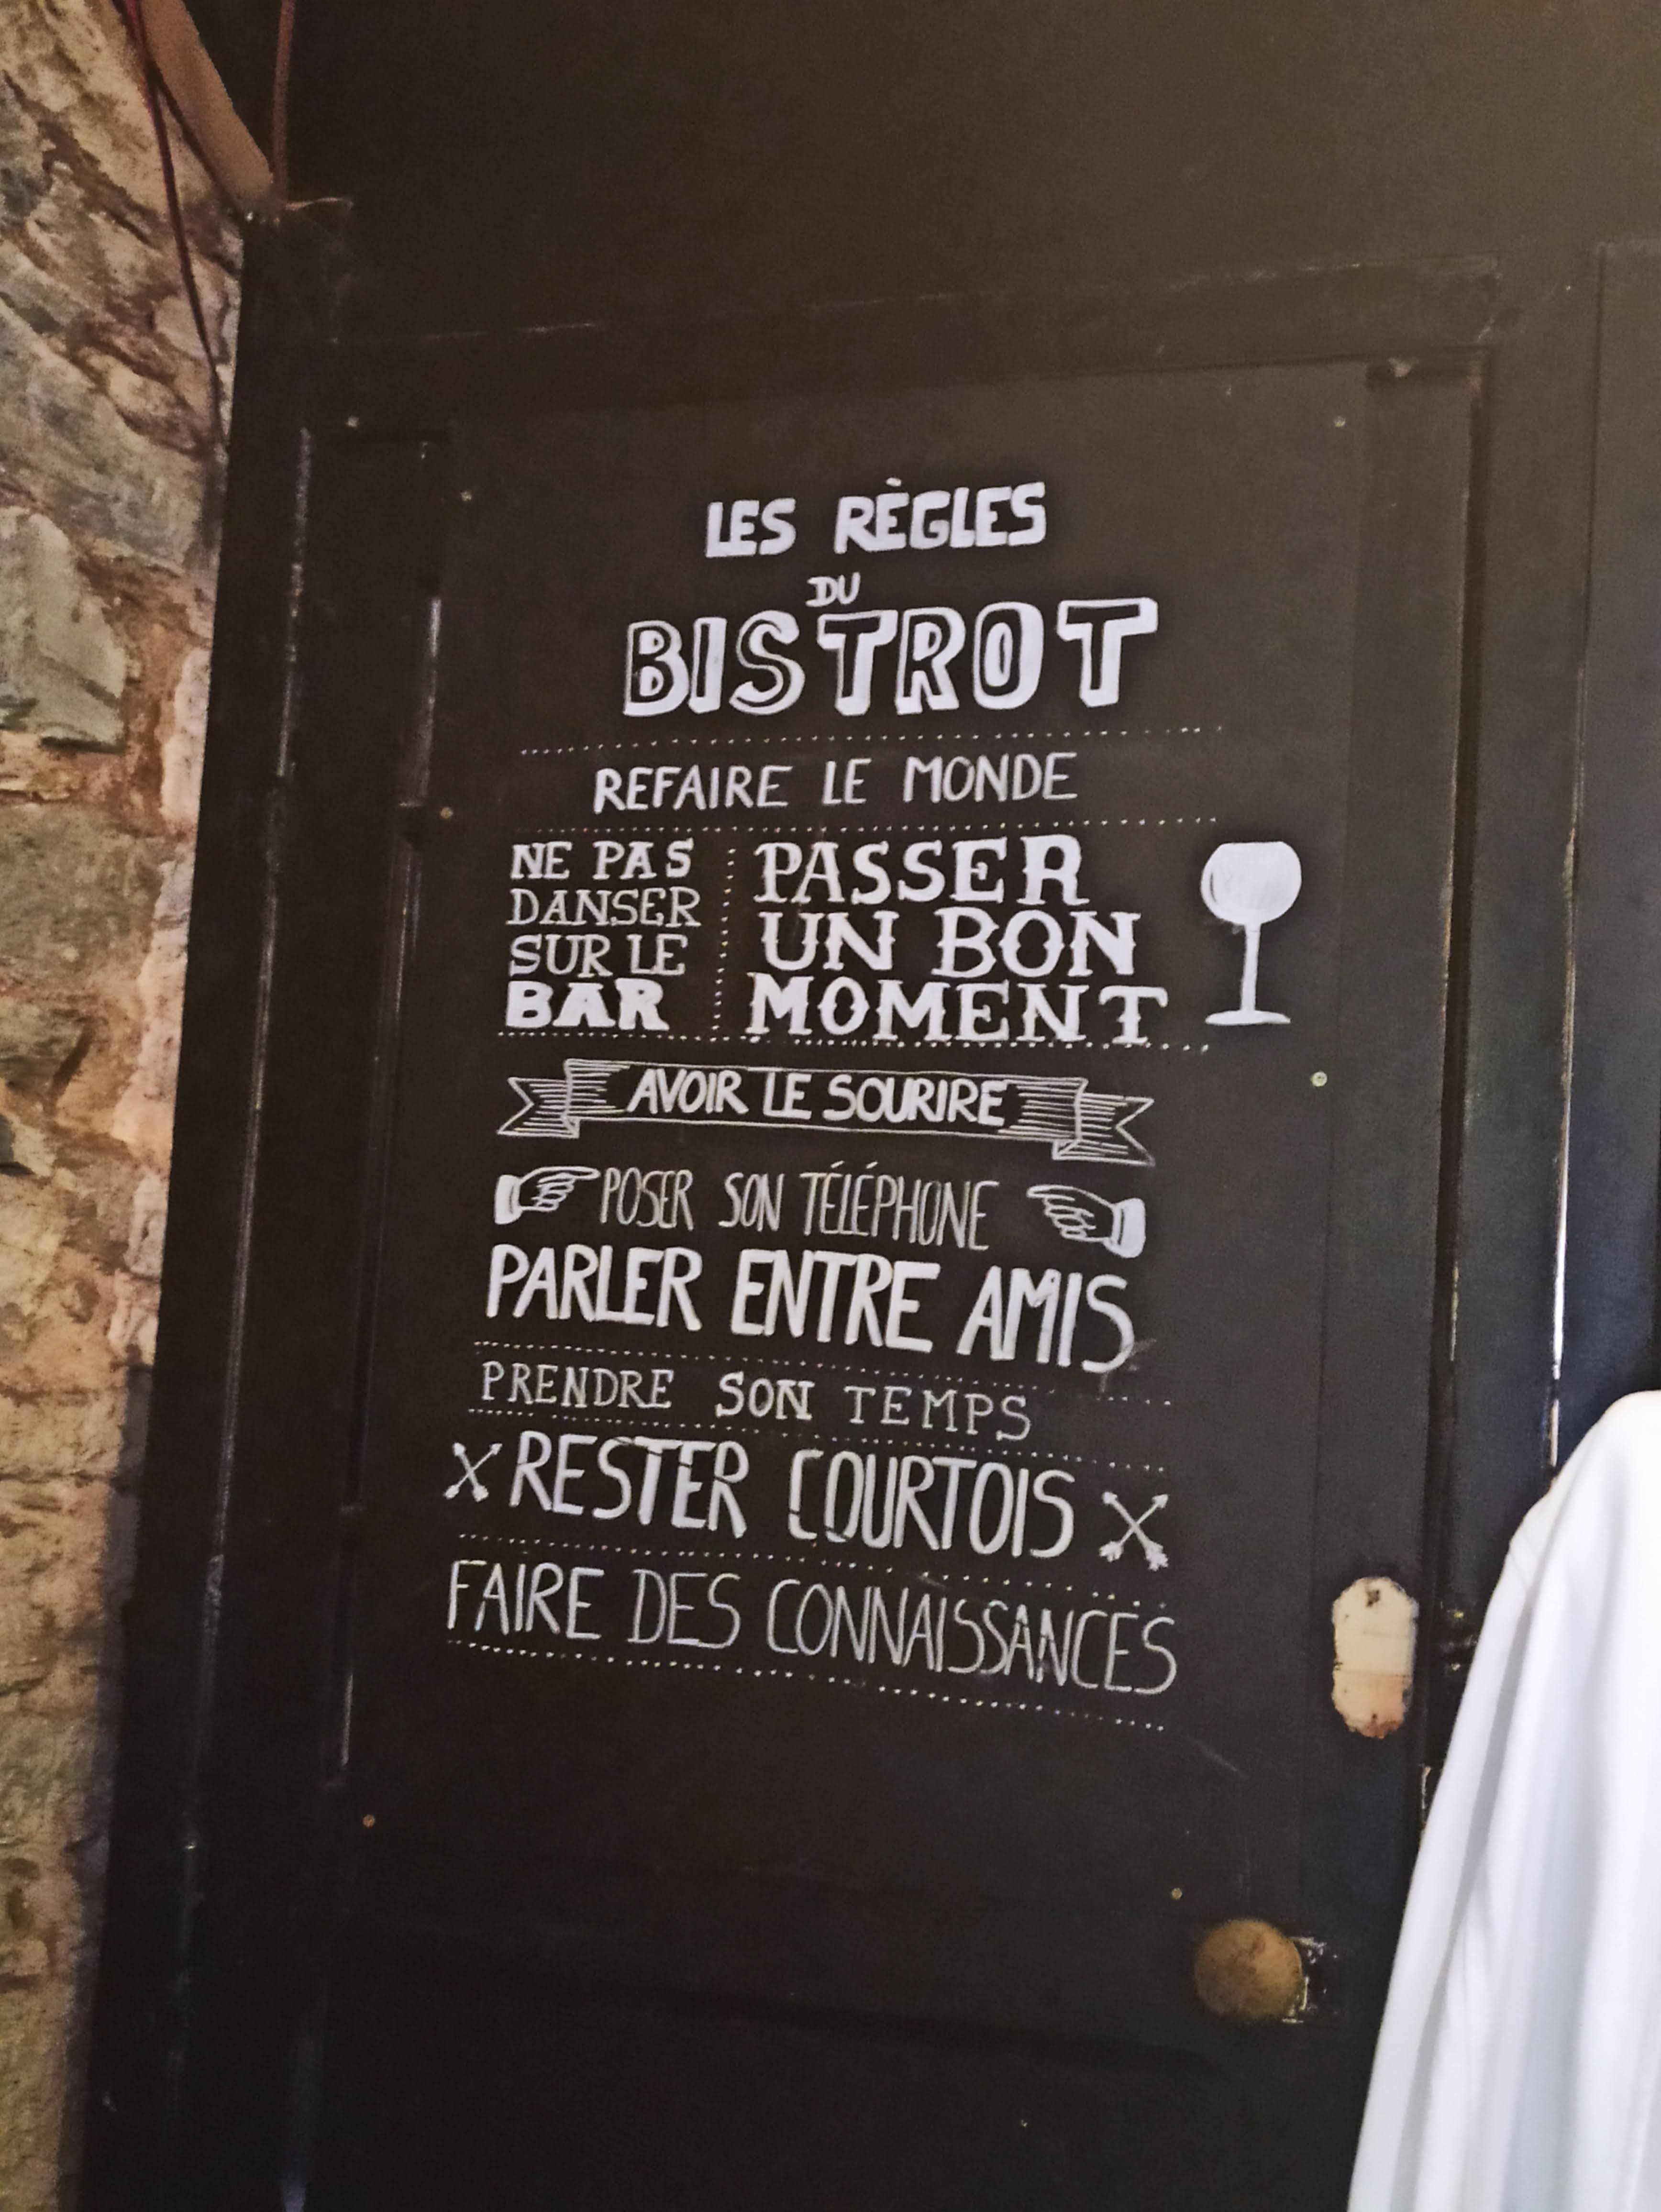 LES RÈGLES
DU
BISTROT
REFAIRE LE MONDE
NE PAS
DANSER
SUR LE
BAR
PASSER
UN BON
MOMENT
AVOIR LE SOURIRE
POSER SON TÉLÉPHONE
PARLER ENTRE AMIS
PRENDRE SON TEMPS
RESTER COURTOIS
FAIRE DES CONNAISSANCES